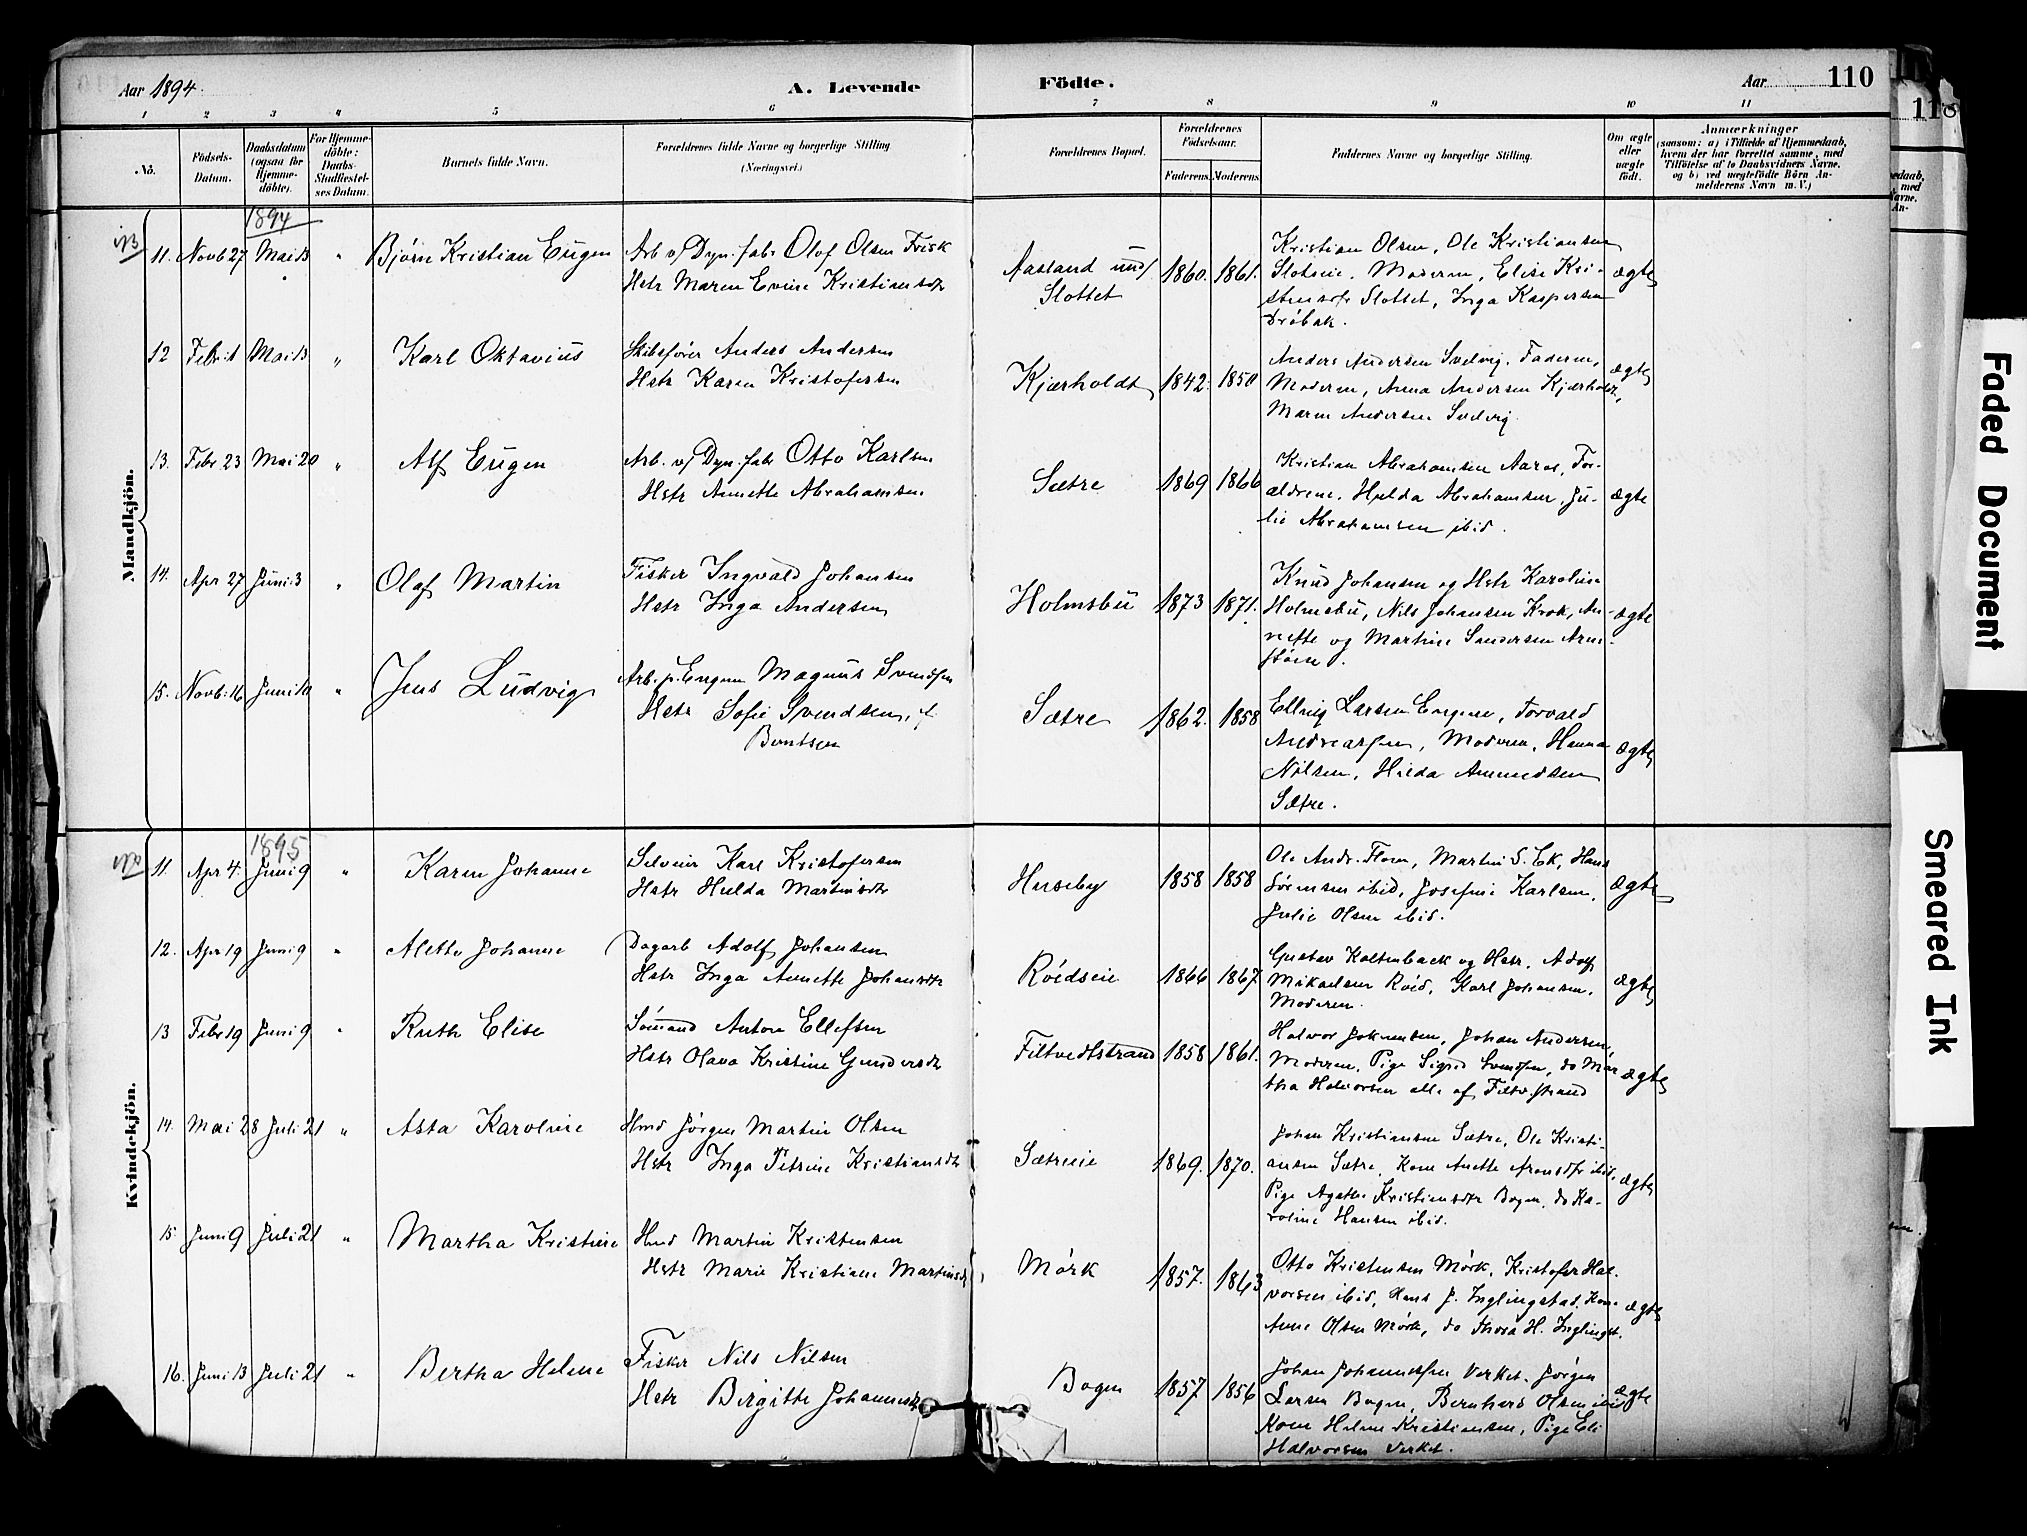 Aar 1894 A. Levende Födte. Aar 110
1 2 3 4 5 6 7 8 9 10 11
No.
Födsels-
Datum.
Daabsdatum
(ogsaa for
Hjemme-
döbte).
For Hjemme-
döbte:
Daabs-
Stadfæstel-
ses Datum.
Barnets fulde Navn.
Forældrenes fulde Navne og borgerlige Stilling
(Næringsvei.)
Forældrenes Bopæl.
Forældrenes
Födselsaar.
Faderens Moderens
Faddernes Navne og borgerlige Stilling.
Om ægte
eller
uægte
födt.
Anmærkninger
(saasom: a) i Tilfælde af Hjemmedaab,
hvem der har forrettet samme, med
Tilföielse af to Daabsvidners Navne.
og b) ved uægtefödte Börn An-
melderens Navn m. V.)
Mandkjön.
1894
11. Novb 27 Mai 13 " Bjørn Kristian Eugen
Arb v/ Dyn. fabr Olof Olsen Frisk
Hstr Maren Evine Kristiansdtr
Aasland und/
Slottet
1860. 1861.
Kristian Olsen, Ole Kristiansen
Slotseie. Moderen, Elise Kri-
stensdtr Slottet, Inga Kaspersen
Drøbak.
ægte
12 Febr 1 Mai 13 " Karl Oktavius
Skibsfører Anders Andersen
Hstr Karen Kristofersen
Kjærholdt 1842. 1850
Anders Andersen Svelvig. Faderen,
Moderen, Anna Andersen Kjærholdt,
Maren Andersen Svelvig.
ægte
13. Febr 23 Mai 20 " Alf Eugen
Arb. v/ Dyn. fabr Otto Karlsen
Hstr Annette Abrahamsen
Sætre 1869 1866
Kristian Abrahamsen Aaros, For-
ældrene, Hulda Abrahamsen, Ju-
lie Abrahamsen ibid.
ægte
14. Apr 27 Juni 3 " Olaf Martin
Fisker Ingvald Johansen
Hstr Inga Andersen
Holmsbu 1873 1871.
Knud Johansen og Hstr Karoline
Holmsbu, Nils Johansen Krok, An-
nette og Martine Sandersen
ægte
15. Novb. 16 Juni 10 " Jens Ludvig
Arb. p. Engene Magnus Svendsen
Hstr Sofie Svendsen, f.
Berntsen
Sætre 1862. 1858
Ellvig Larsen Engene, Torvald
Andreassen, Moderen, Hanna
Nilsen, Hilda Ammundsen
Sætre.
ægte
Kvindekjön.
1895
11. Apr 4. Juni 9 " Karen Johanne
Selveier Karl Kristofersen
Hstr Hulda Martinsdtr
Huseby 1858 1858
Ole Andr. Flom, Martin S. Ek, Hans
Sørensen ibid, Josefine Karlsen,
Julie Olsen ibid.
ægte
12. Apr 19 Juni 9 " Aletto Johanne
Dagarb Adolf Johansen
Hstr Inga Annette Johansdtr
Röidseie 1866 1867
Gustav Kaltenback og Hstr, Adolf
Mikaelsen Röid, Karl Johansen,
Moderen.
ægte
13 Febr 19 Juni 9 " Ruth Elise
Sömand Anton Ellefsen
Hstr Olava Kristine Gundersdtr
Filtvedtstrand 1858 1861.
Halvor Johnsen, Johan Andersen,
Moderen, Pige Sigrid Svendsen, do Mar
tha Halvorsen alle af Filtv. strand
ægte
14. Mai 28 Juli 21 " Asta Karoline
Hmd Jörgen Martin Olsen
Hstr Inga Petrine Kristiansdtr
Sætreeie 1869. 1870.
Johan Kristiansen Sætre, Ole Kristi-
ansen Sætre, Kone Anette Aronsdtr ibid.
Pige Agathe Kristiansdtr Bogen, do Ka-
roline Hansen ibid.
ægte
15. Juni 9 Juli 21 " Martha Kristine
Hmd Martin Kristensen
Hstr Marie Kristiane Martinsdtr
Mørk 1857. 1863
Otto Kristensen Mørk, Kristofer Hal-
vorsen ibid, Hans J. Inglingstad, Kone
Anne Olsen Mørk, do Thora H. Inglingst.
ægte
16. Juni 13 Juli 21 " Bertha Helene
Fisker Nils Nilsen
Hstr Birgitte Johannesdtr
Bogen 1857 1856
Johan Johannessen Verket. Jörgen
Larsen Bogen, Bernhard Olsen ibid
Kone Helene Kristiansen, Pige Eli
Halvorsen Verket.
ægte
Faded Document
Smeared Ink